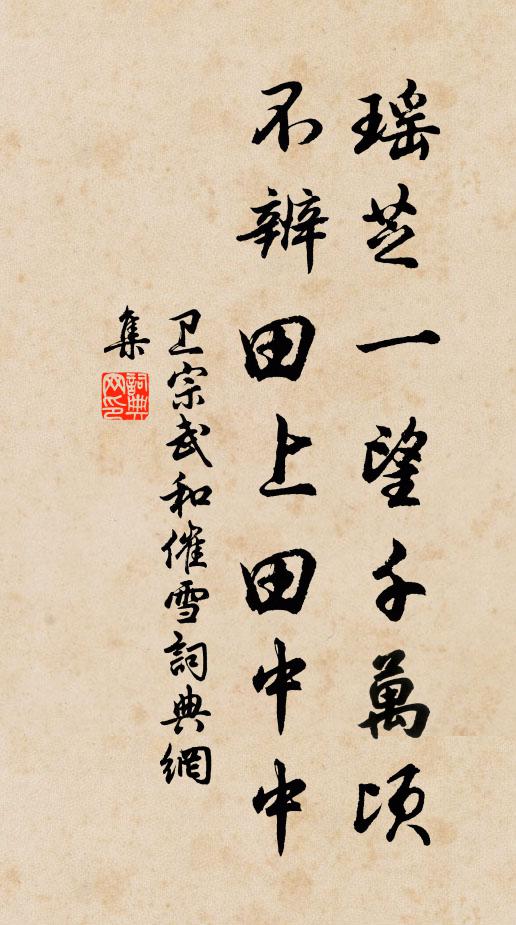 瑶芝一望千萬頃
不辨田上田中中
卫宗武和催雪詞典網
集
詞典
网印